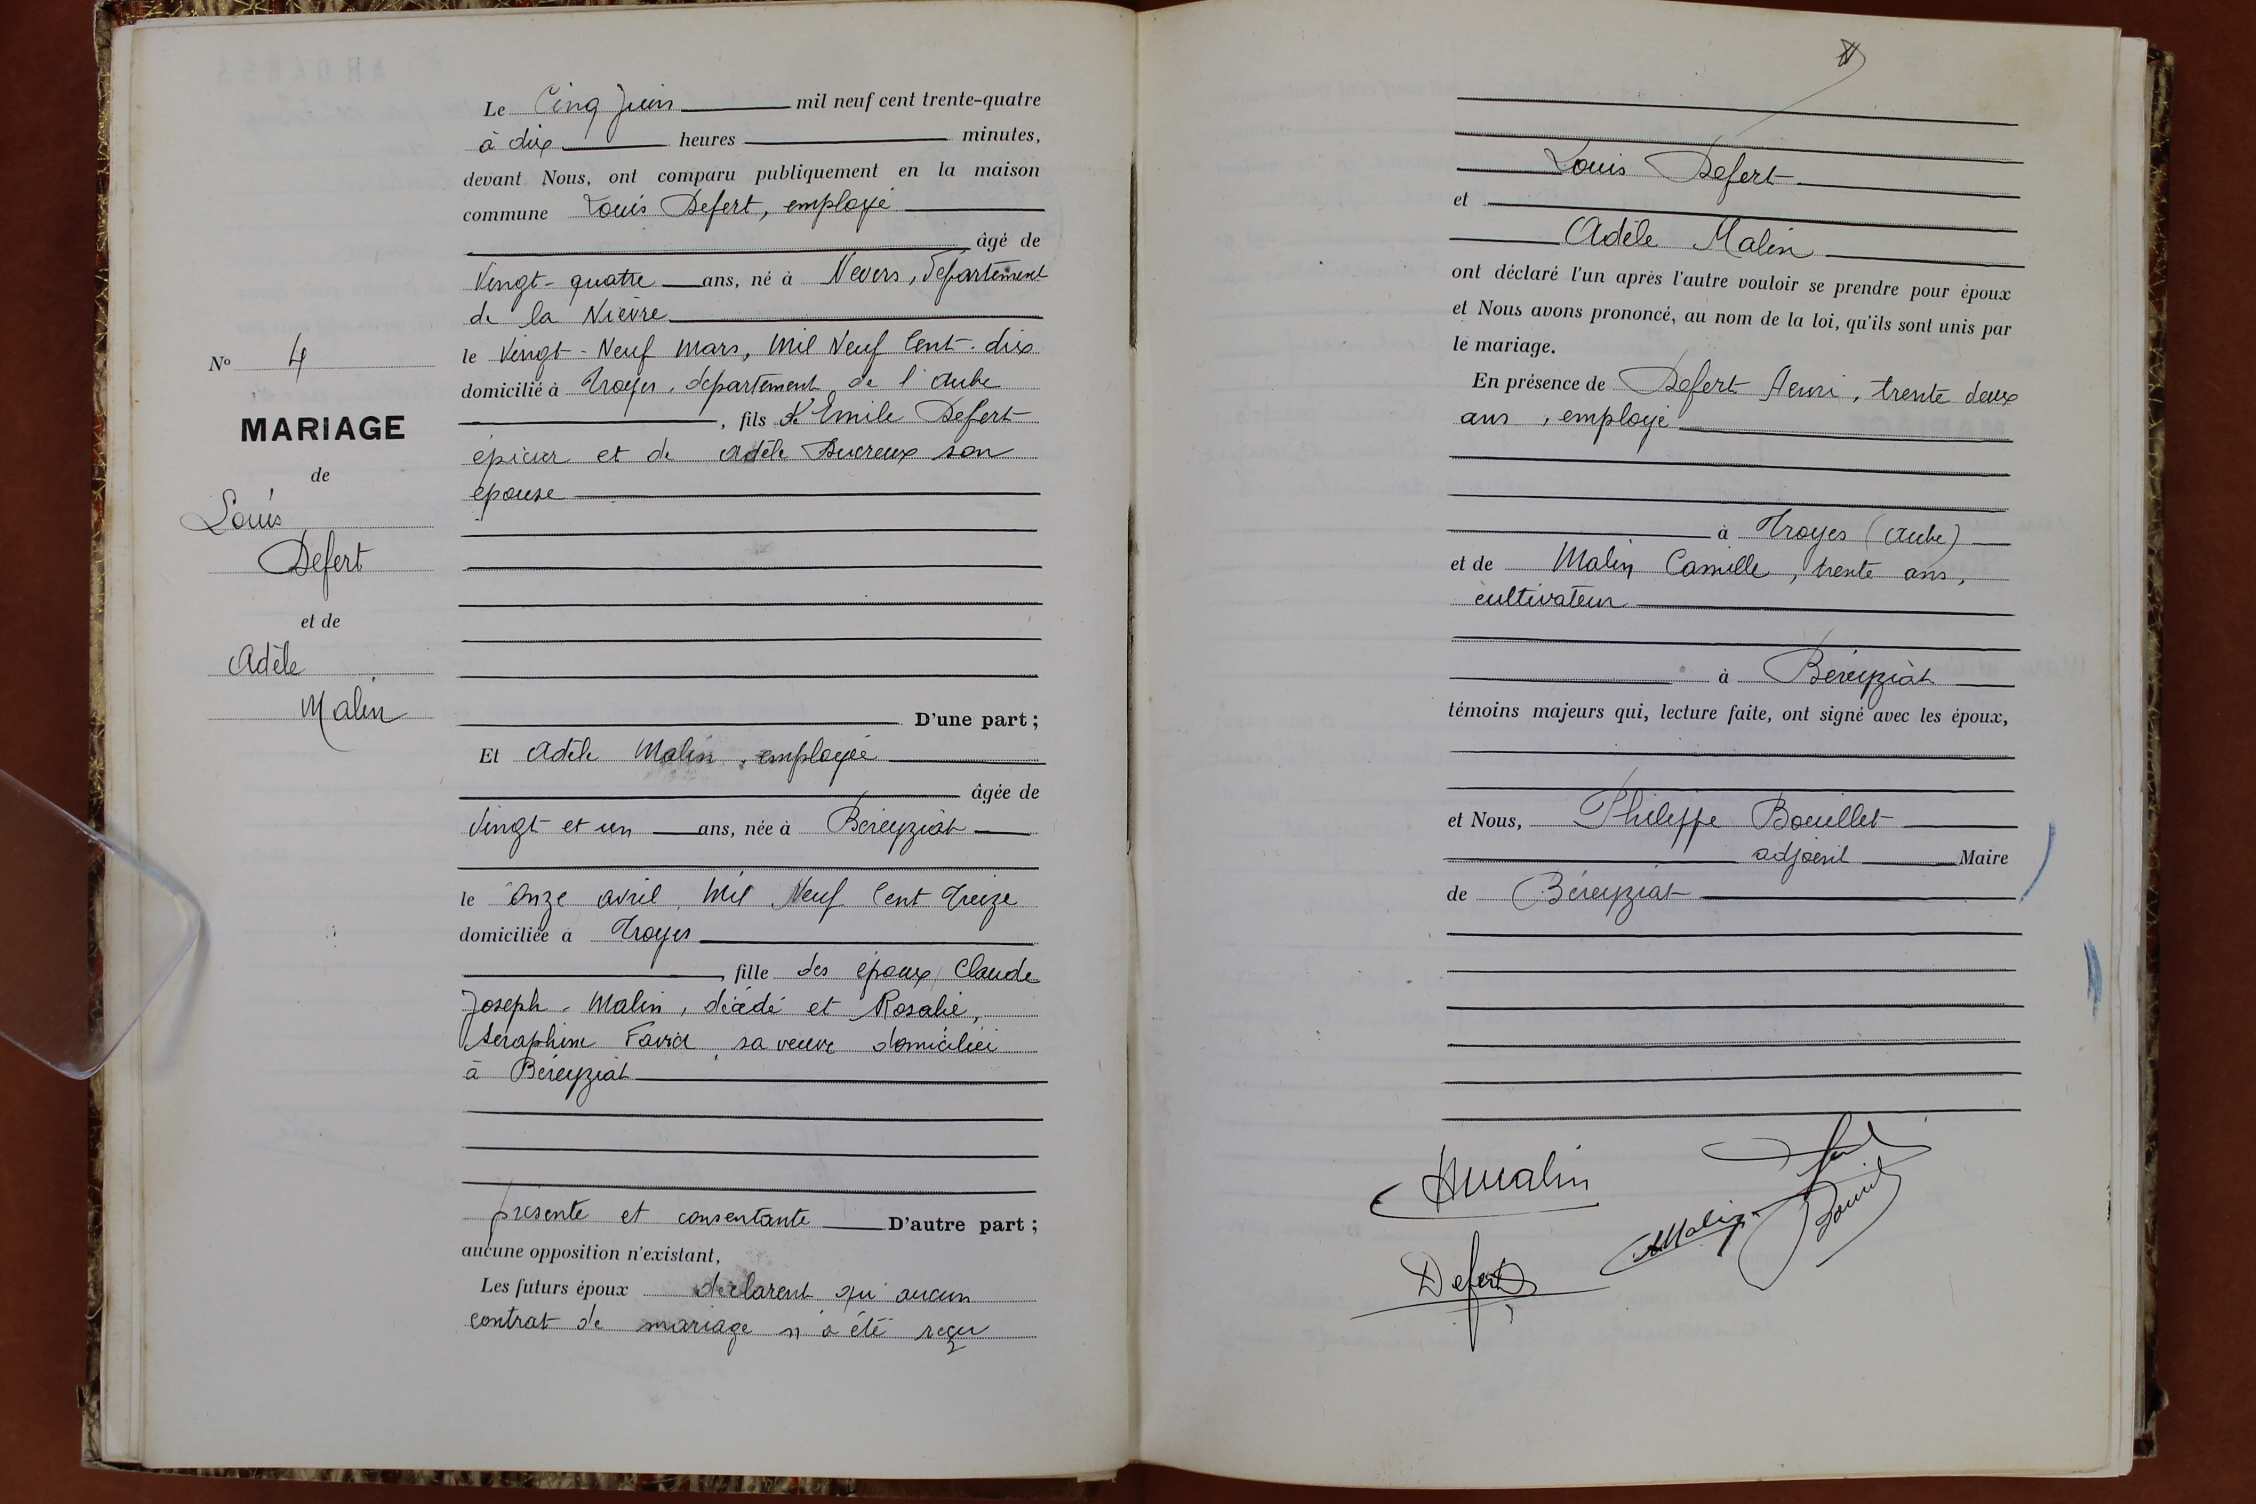 Nº 4
MARIAGE
de
Louis
Defert
et de
Adèle
Malin
Le Cinq Juin mil neuf cent trente-quatre
à dix heures minutes,
devant Nous, ont comparu publiquement en la maison
commune Louis Defert, employé
âgé de
Vingt-quatre ans, né à Nevers, Département
de la Nièvre
le Vingt-Neuf Mars, Mil Neuf Cent-dix
domicilié à Troyes, département de l'Aube
, fils d'Emile Defert
épicier et de Adèle Ducreux son
épouse
D'une part ;
Et Adèle Malin, employée
âgée de
Vingt et un ans, née à Béréyziat
le Onze avril, Mil Neuf Cent Treize
domiciliée à Troyes
, fille des époux Claude
Joseph-Malin, décédé et Rosalie,
Séraphine Favier, sa veuve domiciliée
à Béréyziat
présente et consentante D'autre part ;
aucune opposition n'existant,
Les futurs époux déclarent qu'aucun
contrat de mariage n'a été reçu
Louis Defert
et
Adèle Malin
ont déclaré l'un après l'autre vouloir se prendre pour époux
et Nous avons prononcé, au nom de la loi, qu'ils sont unis par
le mariage.
En présence de Defert Henri, trente deux
ans, employé
à Troyes (Aube)
et de Malin Camille, trente ans,
cultivateur
à Béréyziat
témoins majeurs qui, lecture faite, ont signé avec les époux,
et Nous, Philippe Bouillet
adjoint Maire
de Béréyziat
AMalin
Defert